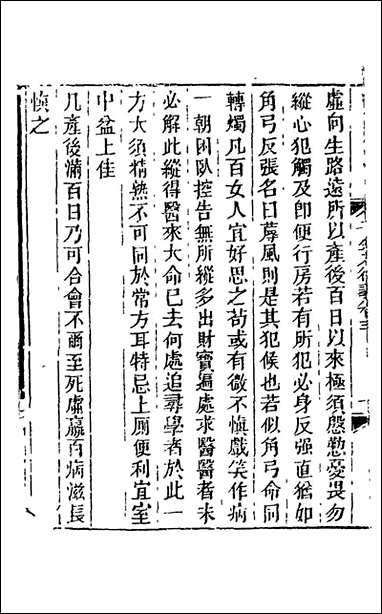 虛向生路遠所以產後百日以來極須慇懃憂畏勿
縱心犯觸及即便行房若有所犯必身反强直猶如
角弓反張名曰蓐風則是其犯候也若似角弓命同
轉燭凡百女人宜好思之苟或有微不慎戲笑作病
一朝困臥控告無所縱多出財寶遍處求醫醫者未
必解此縱得醫來大命已去何處追尋學者於此一
方大須精熟不可同於常方耳特忌上厠便利宜室
中盆上佳
凡產後滿百日乃可合會不爾至死虛羸百病滋長
慎之